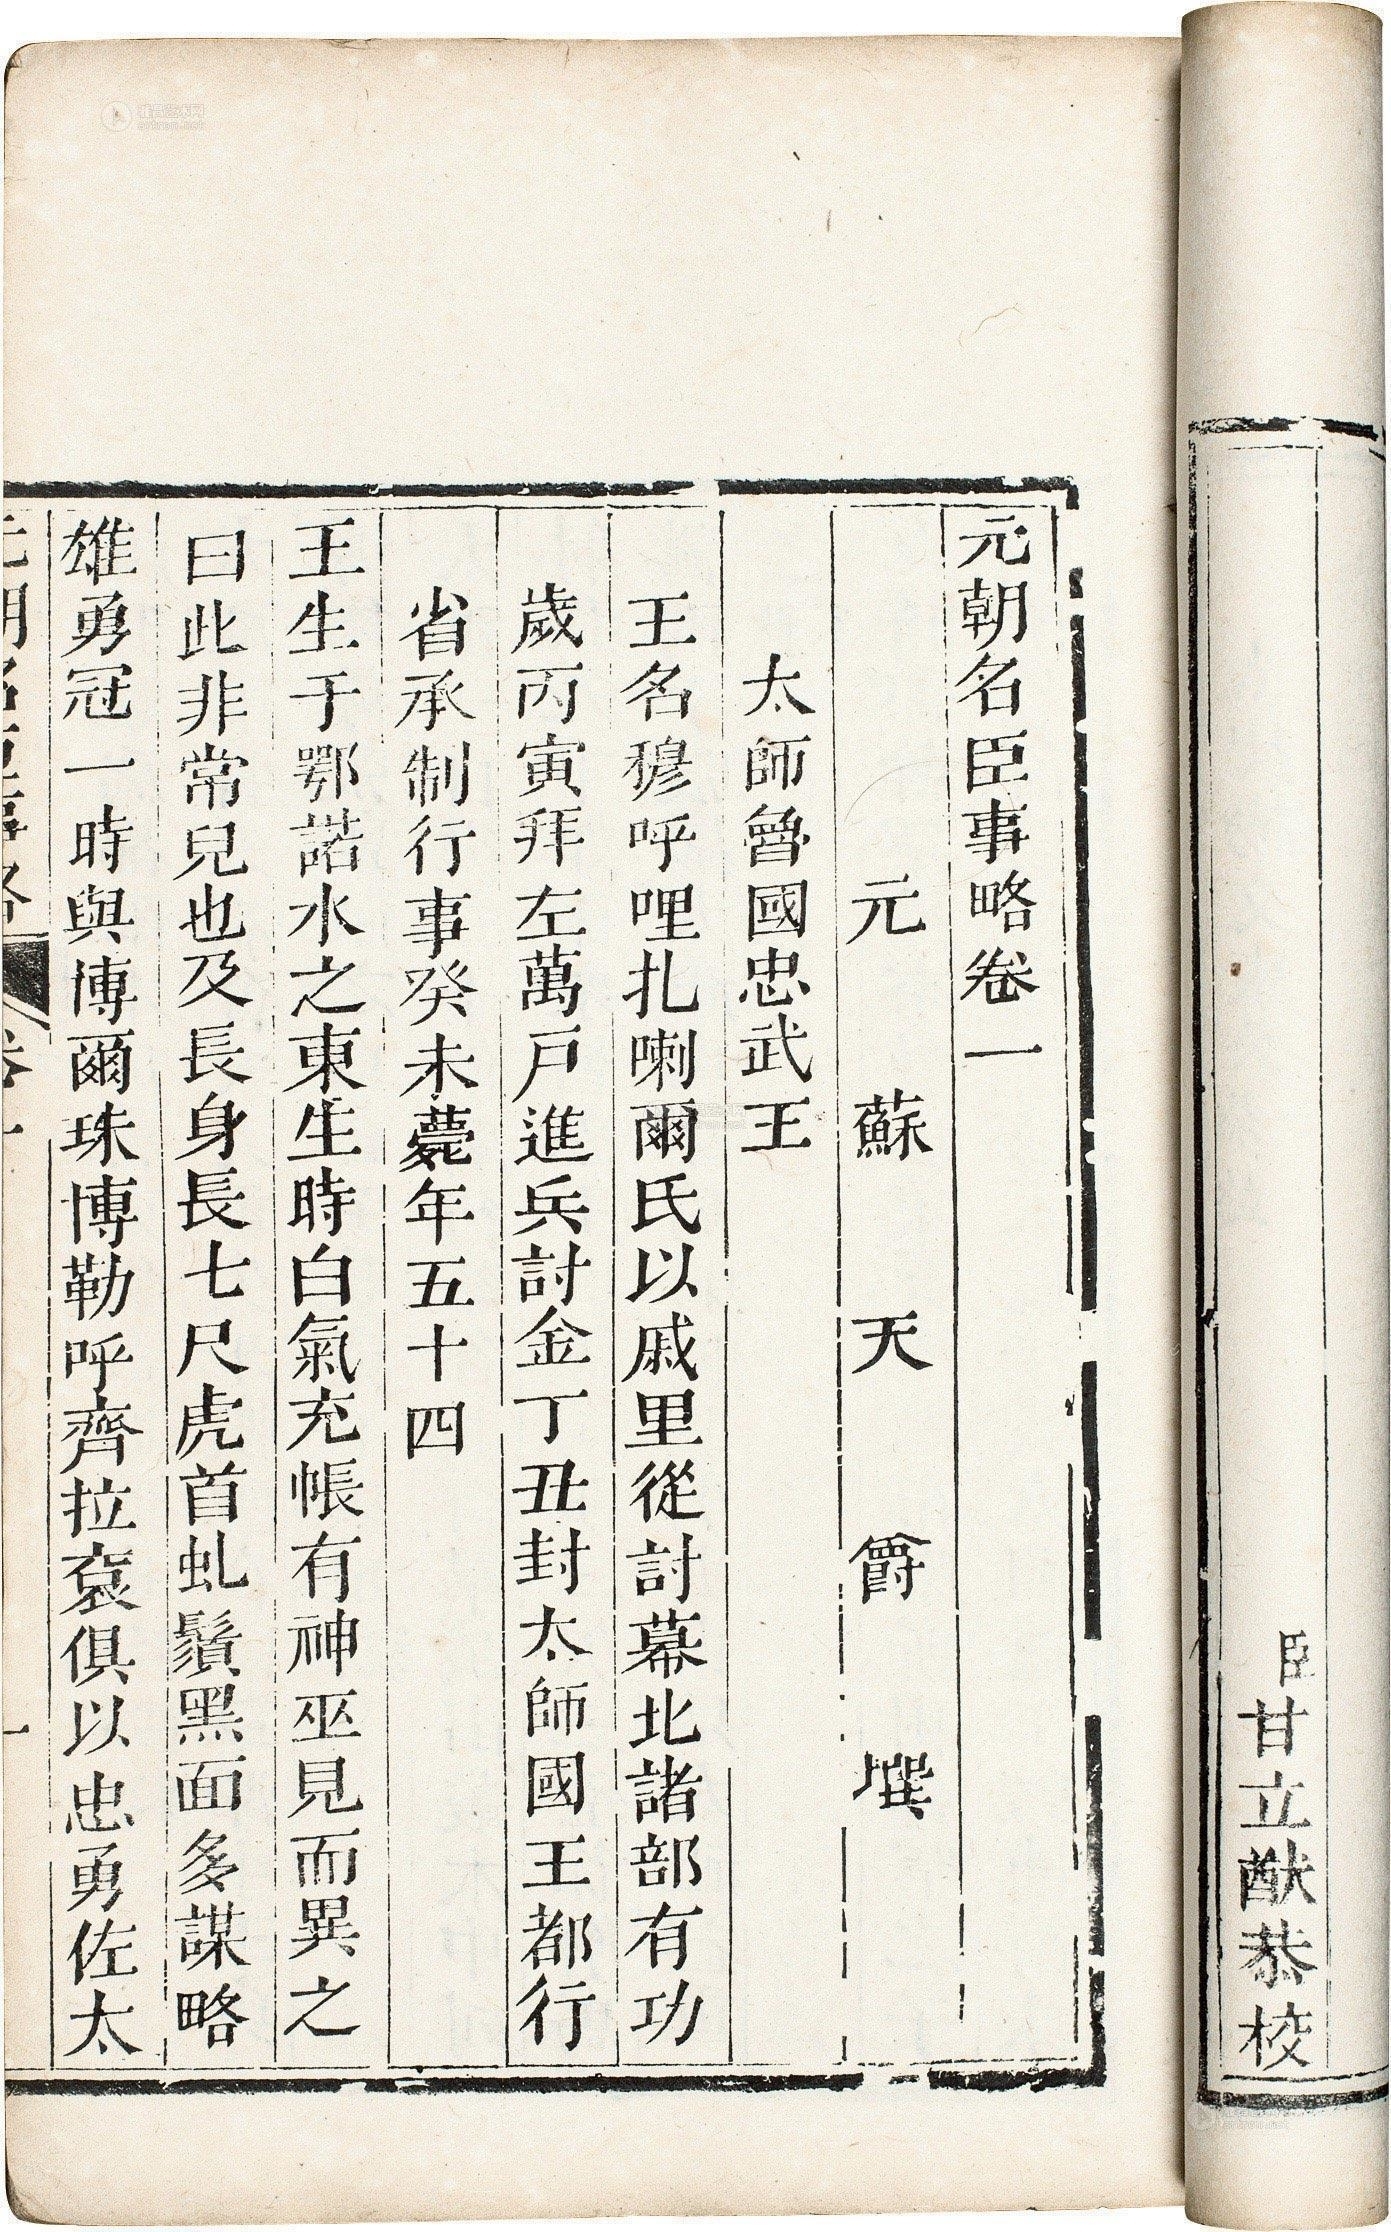 臣甘立猷恭校
元朝名臣事略卷一
元蘇天爵撰
太師魯國忠武王
王名穆呼哩扎喇爾氏以戚里從討幕北諸部有功
歲丙寅拜左萬戶進兵討金丁丑封太師國王都行
省承制行事癸未薨年五十四
王生于鄂諾水之東生時白氣充帳有神巫見而異之
曰此非常兒也及長身長七尺虎首虬鬚黑面多謀略
雄勇冠一時與博爾珠博勒呼齊拉衮俱以忠勇佐太
元朝名臣事略 卷一 一
雅昌艺术网
artron.net